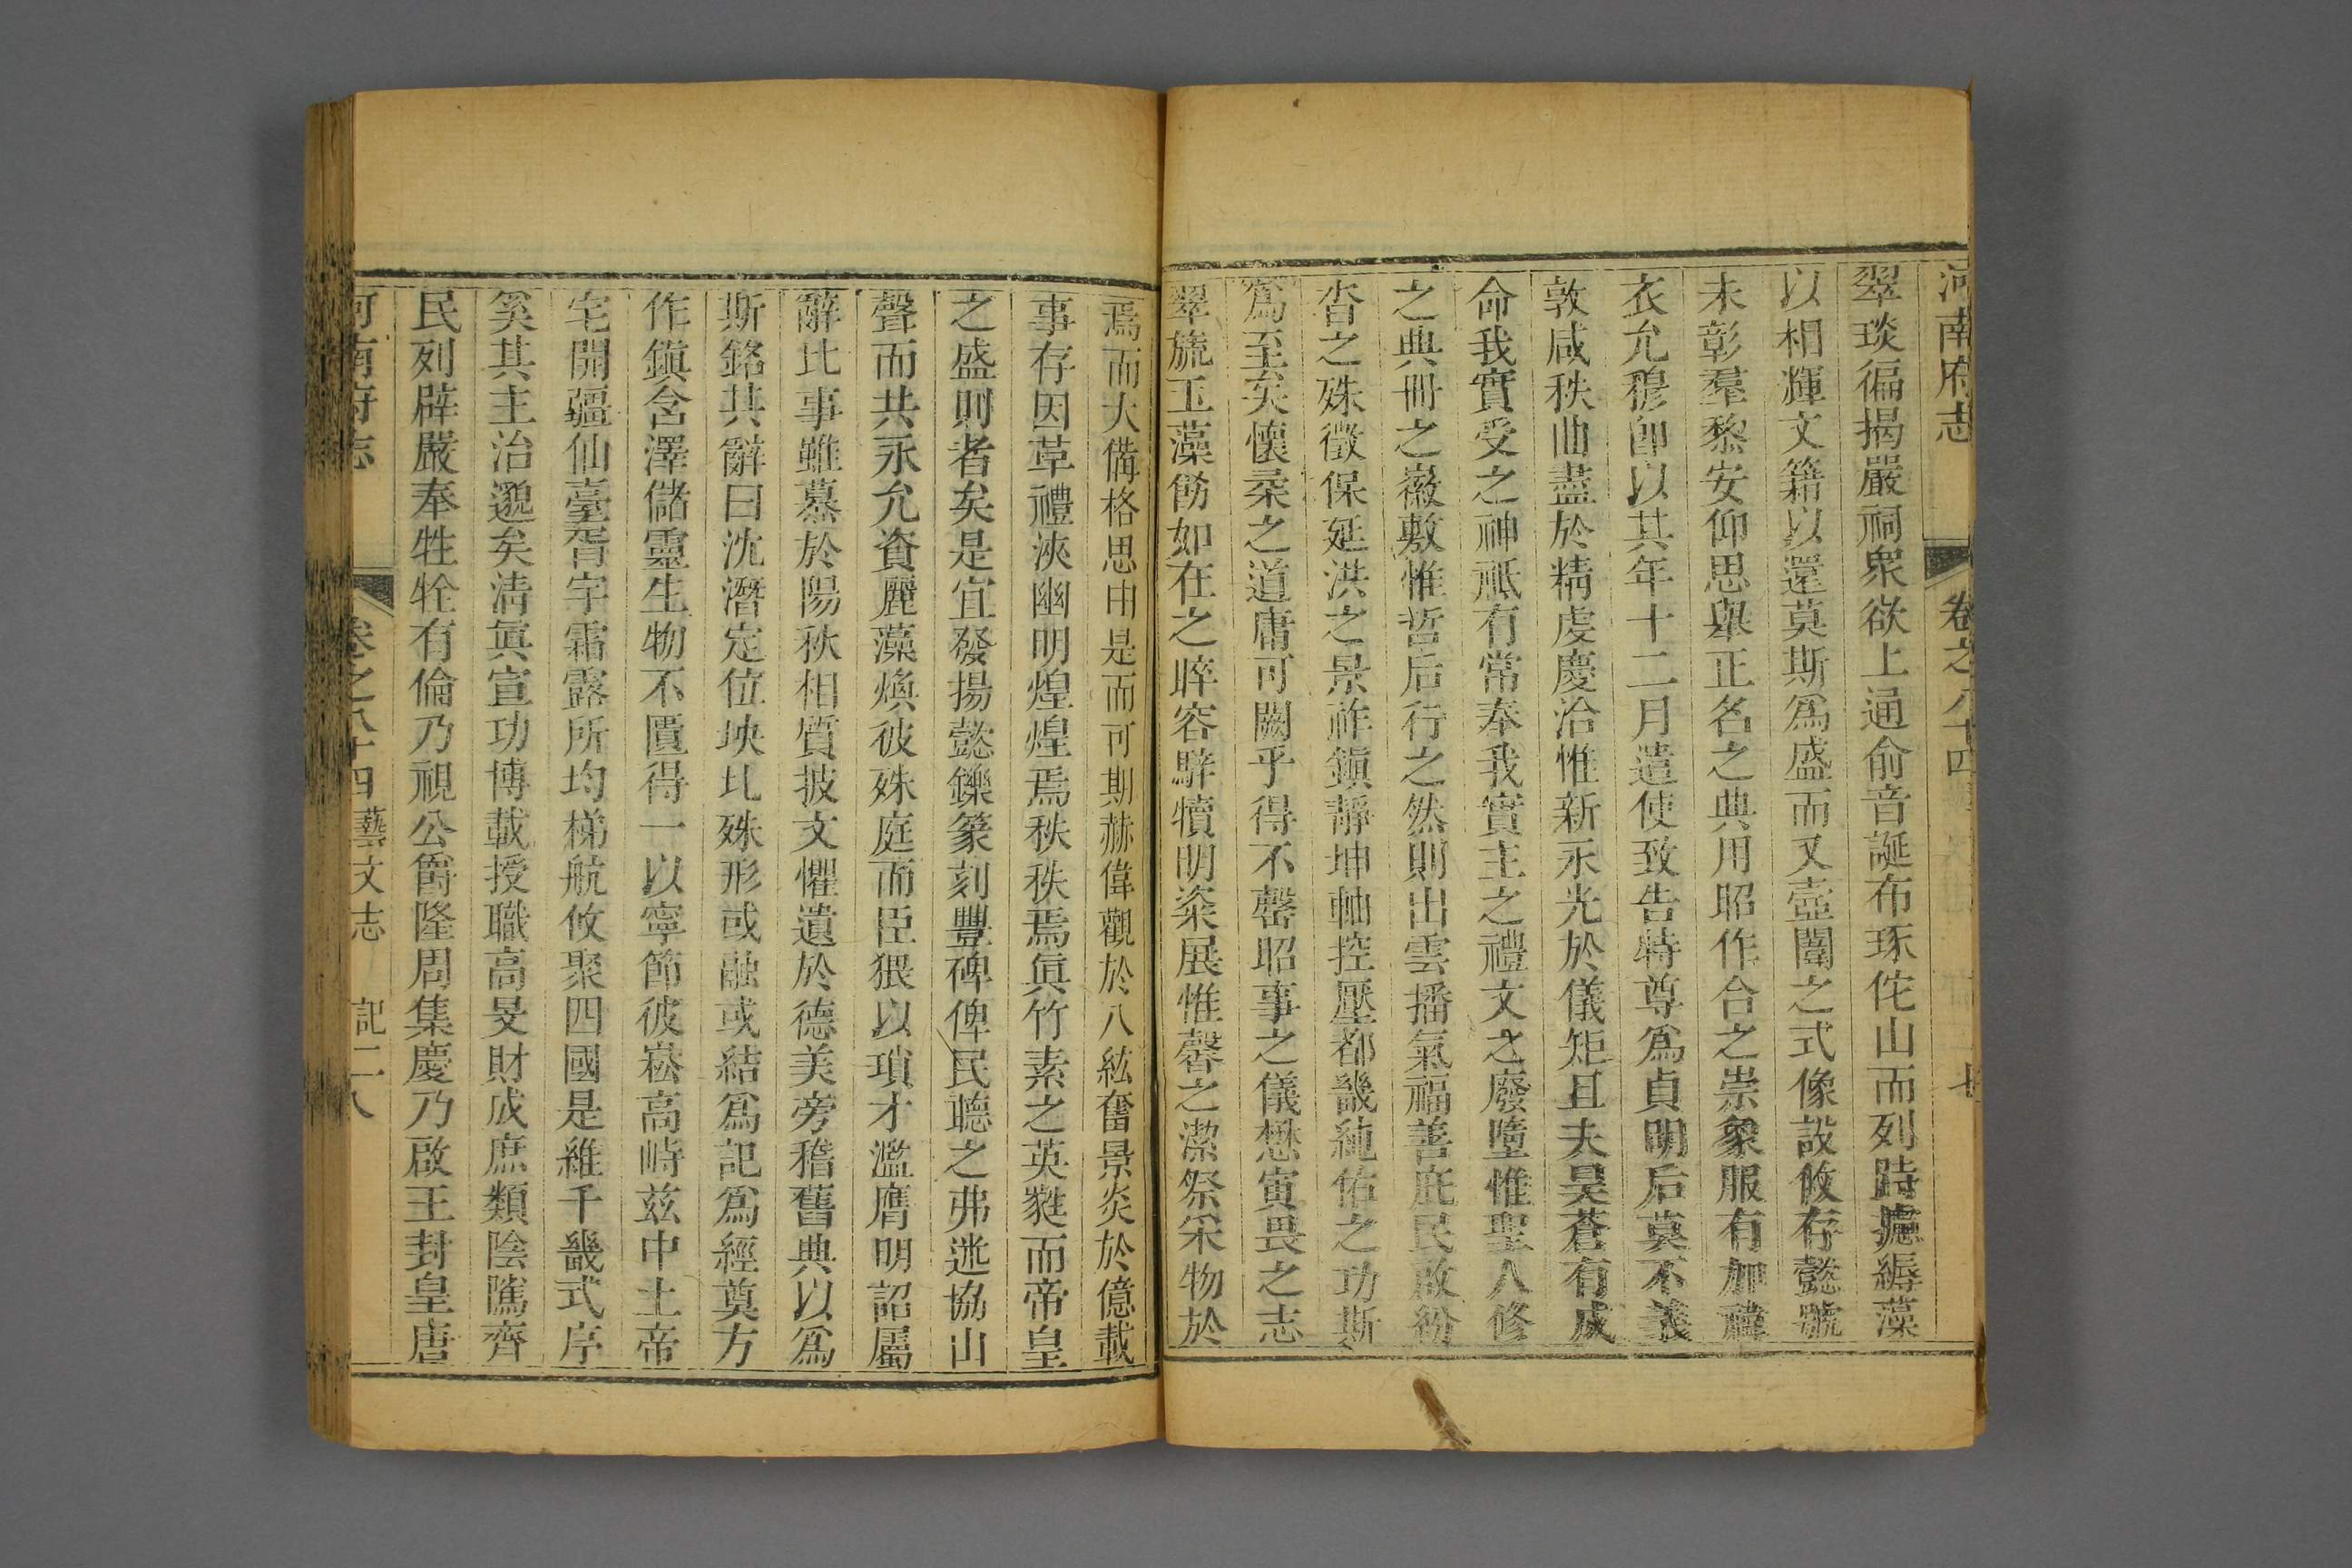 河南府志 卷之八十四
翠琰徧揭嚴祠衆欲上通俞音誕布琢佗山而列時摅縟藻
以相輝文籍以還莫斯爲盛而又壼闈之式像設攸存懿號
未彰羣黎安仰思舉正名之典用昭作合之崇象服有加褘
衣允穆卽以其年十二月遣使致告特尊爲貞明后莫不義
敦咸秩曲盡於精虔慶洽惟新永光於儀矩且夫昊蒼有成
命我實受之神祇有常奉我實主之禮文之廢墮惟聖人修
之典冊之徽敷惟哲后行之然則出雲播氣福善庇民啟紛
沓之殊徵保延洪之景祚鎭靜坤軸控壓都畿純佑之功斯
爲至矣懷柔之道庸可闕乎得不罄昭事之儀懋寅畏之志
翠旒玉藻飾如在之睟容騂犢明粢展惟馨之潔祭采物於
焉而大備格思由是而可期赫偉觀於八紘奮景炎於億載
事存因革禮浹幽明煌煌焉秩秩焉眞竹素之英蕤而帝皇
之盛則者矣是宜發揚懿鑠篆刻豐碑俾民聽之弗迷協山
聲而共永允資麗藻煥彼殊庭而臣猥以瑣才濫膺明詔屬
辭比事雖慕於陽秋相質披文懼遺於德美旁稽舊典以爲
斯銘其辭曰沈潛定位坱圠殊形或融或結爲記爲經奠方
作鎭含澤儲靈生物不匱得一以寧節彼崧高峙兹中土帝
宅開疆仙臺胥宇霜露所均梯航攸聚四國是維千畿式序
奚其主治邈矣淸眞宣功博載授職高旻財成庶類陰隲齊
民列辟嚴奉牲牷有倫乃視公爵隆周集慶乃啟王封皇唐
河南府志 卷之八十四藝文志 記二八